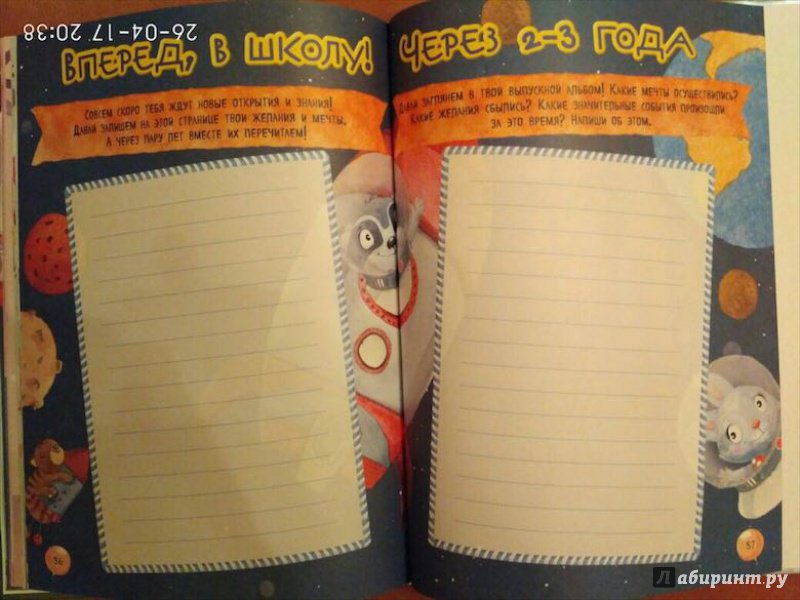 26-04-17 20:38
ВПЕРЕД, В ШКОЛУ!
СОВСЕМ СКОРО ТЕБЯ ЖДУТ НОВЫЕ ОТКРЫТИЯ И ЗНАНИЯ!
ДАВАЙ ЗАПИШЕМ НА ЭТОЙ СТРАНИЦЕ ТВОИ ЖЕЛАНИЯ И МЕЧТЫ,
А ЧЕРЕЗ ПАРУ ЛЕТ ВМЕСТЕ ИХ ПЕРЕЧИТАЕМ!
56
ЧЕРЕЗ 2-3 ГОДА
ДАВАЙ ЗАГЛЯНЕМ В ТВОЙ ВЫПУСКНОЙ АЛЬБОМ! КАКИЕ МЕЧТЫ ОСУЩЕСТВИЛИСЬ?
КАКИЕ ЖЕЛАНИЯ СБЫЛИСЬ? КАКИЕ ЗНАЧИТЕЛЬНЫЕ СОБЫТИЯ ПРОИЗОШЛИ
ЗА ЭТО ВРЕМЯ? НАПИШИ ОБ ЭТОМ.
57
Лабиринт.ру